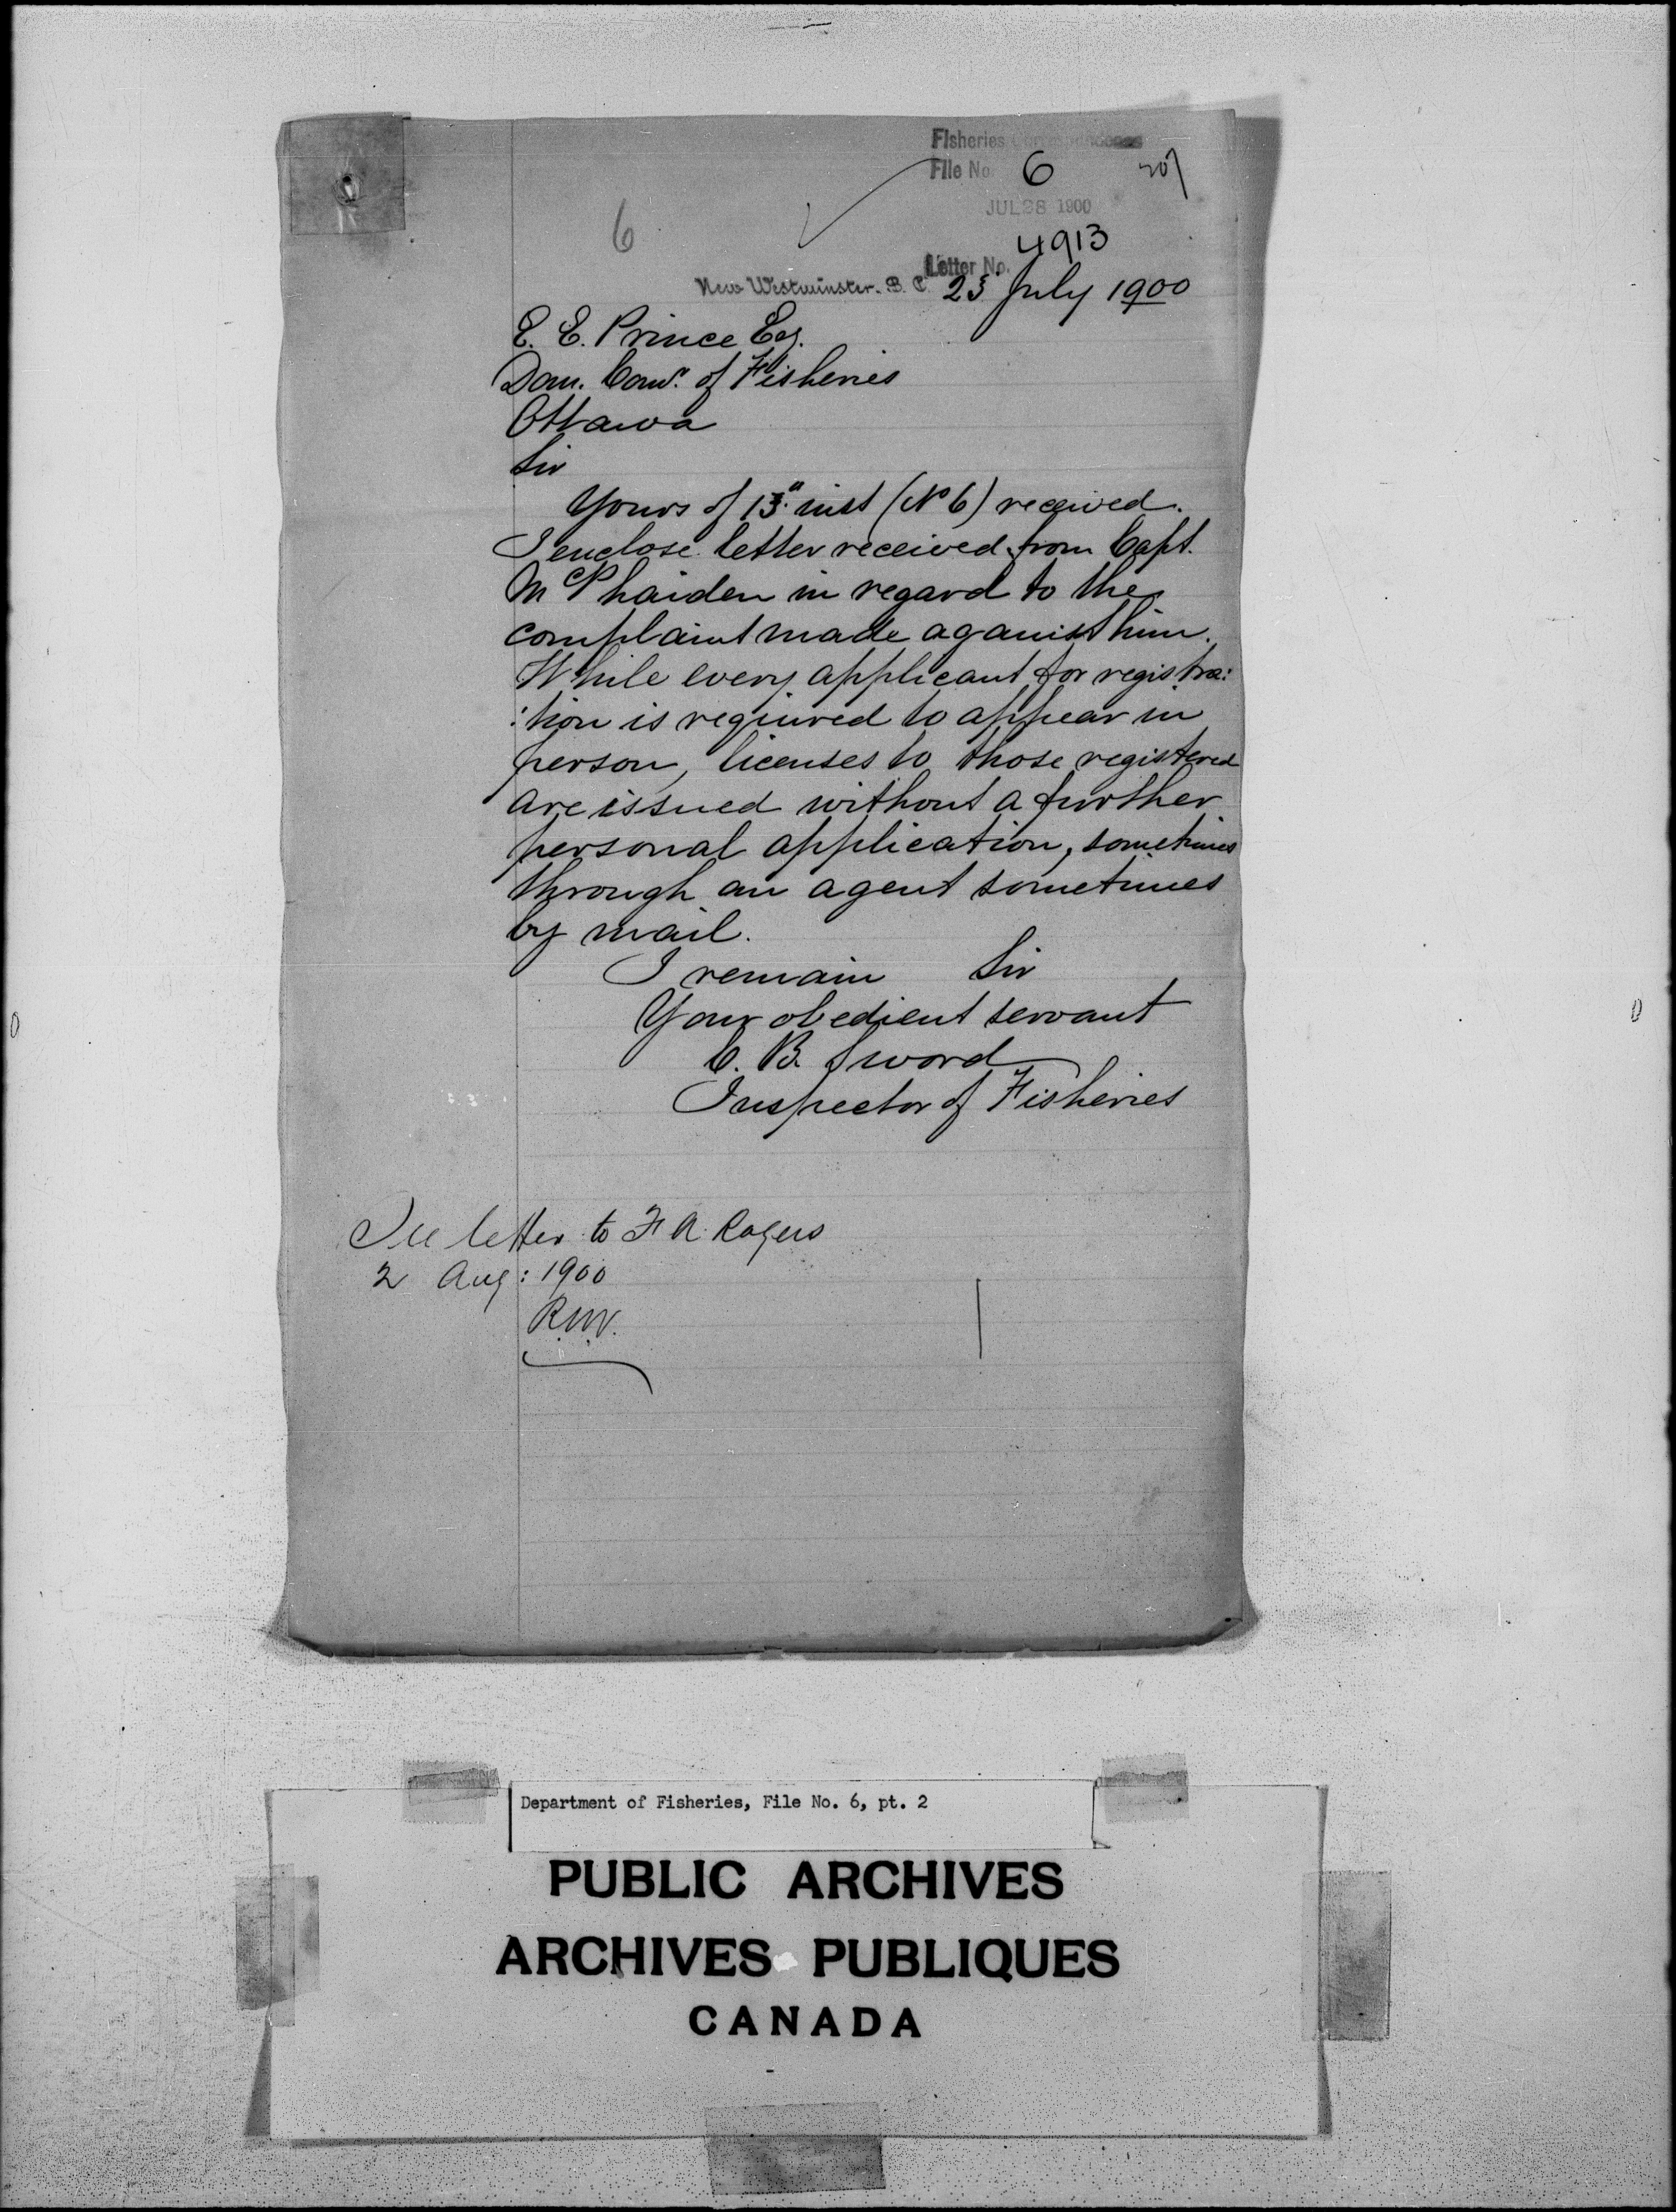 Fisheries Correspondence
File No. 6 207
JUL 28 1900
6
4913
Letter No.
New Westminster. B. C. 23 July 1900
E. E. Prince Esq.
Dom. Comr. of Fisheries
Ottawa
Sir
Yours of 13" inst (No 6) received.
I enclose letter received from Capt.
McPhaiden in regard to the
complaint made against him.
While every applicant for registra:
:tion is required to appear in
person, licenses to those registered
are issued without a further
personal application, sometimes
through an agent sometimes
by mail.
I remain Sir
Your obedient servant
C. B. Sword
Inspector of Fisheries
See letter to F A. Rogers
2 Aug: 1900
R.N.V.
Department of Fisheries, File No. 6, pt. 2
PUBLIC ARCHIVES
ARCHIVES PUBLIQUES
CANADA